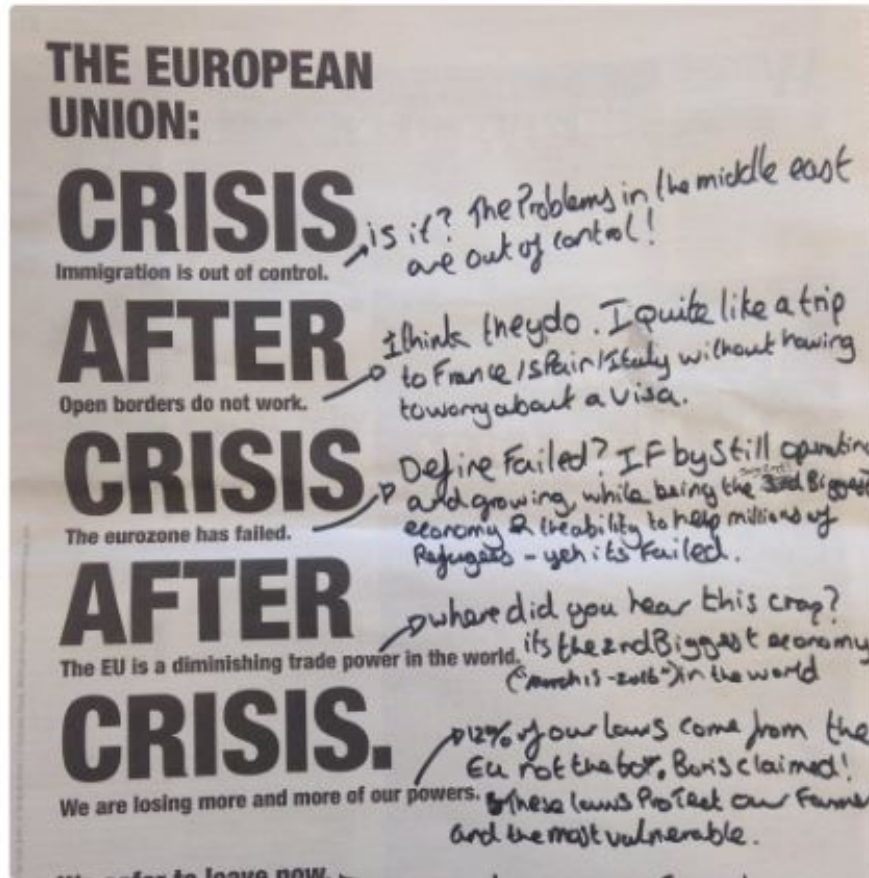 THE EUROPEAN
UNION:
CRISIS
Immigration is out of control.
is it? The Problems in the middle east
are out of control!
AFTER
Open borders do not work.
I think they do. I quite like a trip
to France/Spain/Italy without having
to worry about a visa.
CRISIS
The eurozone has failed.
Define Failed? IF by Still operating
and growing, while being the Biggest
economy & the ability to help millions of
Refugees - yeh its Failed.
AFTER
The EU is a diminishing trade power in the world.
where did you hear this crap?
its the 2nd Biggest economy
("march 15 - 2016") in the world
CRISIS.
We are losing more and more of our powers.
12% of our laws come from the
Eu not the 60%. Boris claimed!
these laws ProTect our Farme
and the most vulnerable.
to leave now.